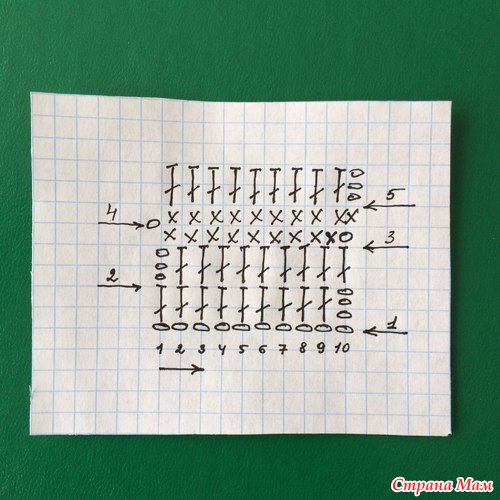 5
4
3
2
1
1 2 3 4 5 6 7 8 9 10
Страна Мам